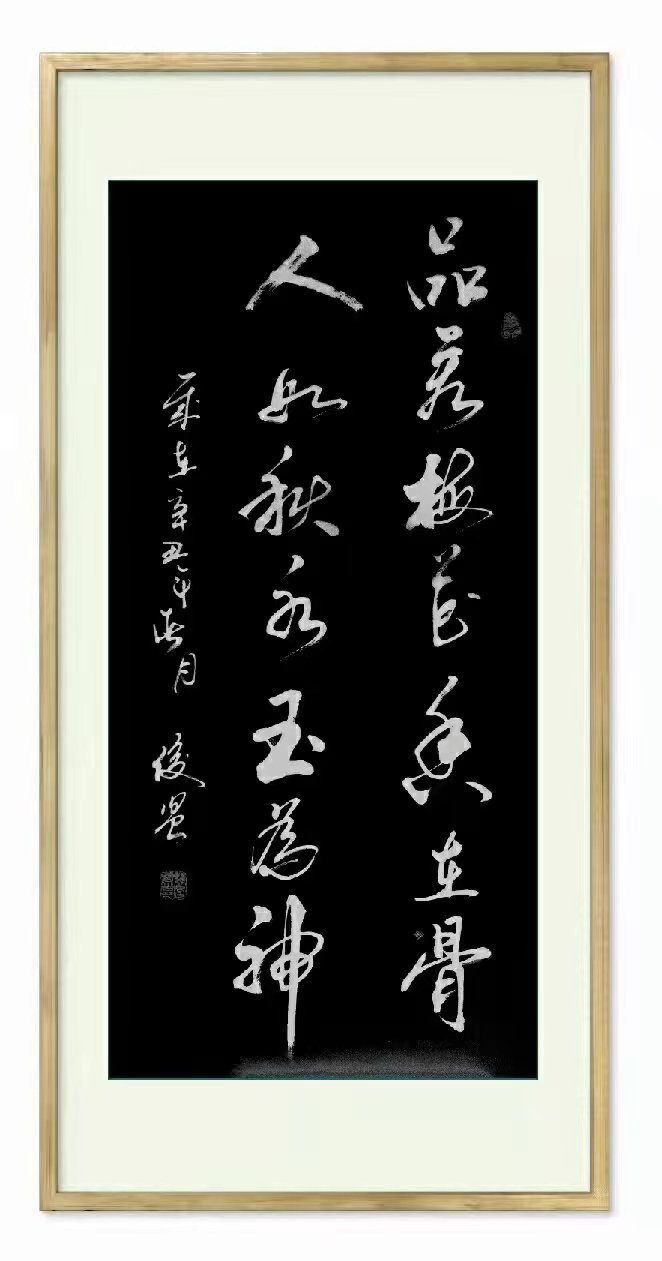 品若梅花香在骨
人如秋水玉為神
歲在辛丑年
月